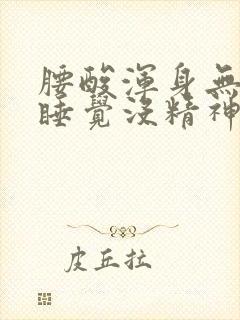 腰酸渾身無
睡覺沒精神
皮丘拉